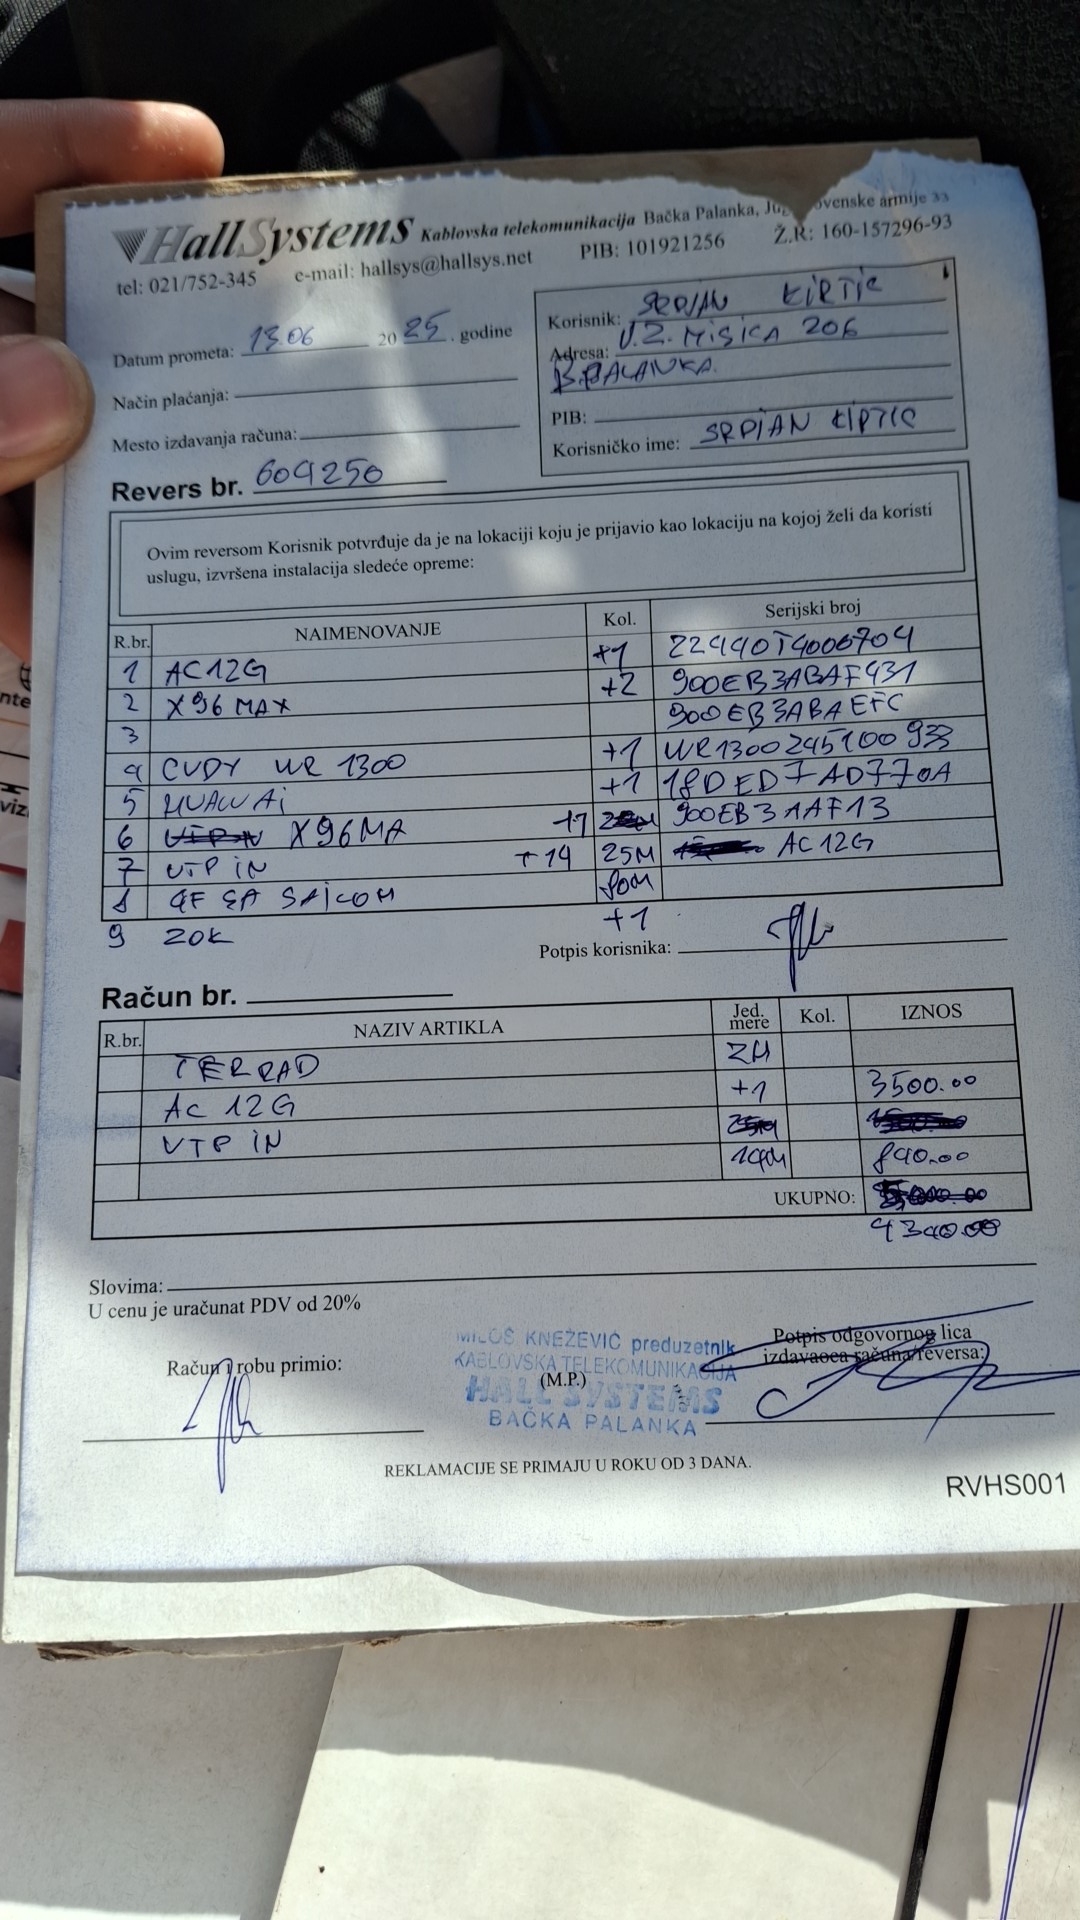 HallSystems Kablovska telekomunikacija Bačka Palanka, ovenske armije 33
tel: 021/752-345 e-mail: hallsys@hallsys.net PIB: 101921256 Ž.R: 160-157296-93
Datum prometa: 13.06 2025. godine
Način plaćanja:
Mesto izdavanja računa:
Revers br. 609250
Korisnik: SRDJAN KIRTIC
Adresa: V.Z. MISICA 206
B.PALANKA.
PIB:
Korisničko ime: SRDIAN KIRTIC
Ovim reversom Korisnik potvrđuje da je na lokaciji koju je prijavio kao lokaciju na kojoj želi da koristi
uslugu, izvršena instalacija sledeće opreme:
R.br. NAIMENOVANJE Kol. Serijski broj
1 AC12G +1 22440T4006704
2 X96 MAX +2 900EB3ABAF431
3 900EB3ABAEFC
4 CUDY WR 1300 +1
5 HUAWAi +1 18DED7AD770A
6 X96MA +1 900EB31AF13
7 UTP iN +14 25M AC12G
8 SAJCOM 80M
9 ZOK +1
Potpis korisnika:
Račun br.
R.br. NAZIV ARTIKLA Jed. mere Kol. IZNOS
TERRAD 2H
AC 12G +1 3500.00
UTP iN
14M 840.00
UKUPNO:
4340.00
Slovima:
U cenu je uračunat PDV od 20%
Račun i robu primio:
MILOŠ KNEŽEVIĆ preduzetnik
KABLOVSKA TELEKOMUNIKACIJA
(M.P.)
HALL SYSTEMS
BAČKA PALANKA
Potpis odgovornog lica
izdavaoca računa/reversa:
REKLAMACIJE SE PRIMAJU U ROKU OD 3 DANA.
RVHS001